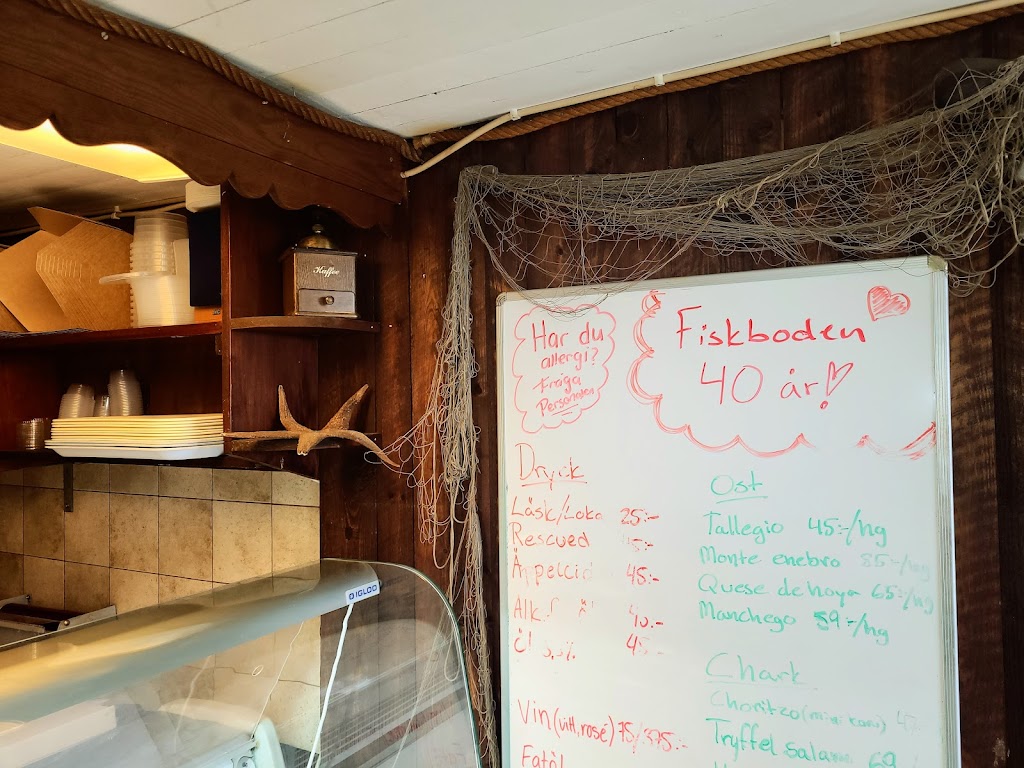 Kaffee
IGLOO
Har du
allergi?
Fråga
Personalen
Fiskboden
40 år!
Dryck
Läsk/Loka 25:-
Rescued 45:-
Äppelcider 45:-
Alk. 40.-
45:-
Vin (vitt, rosé) 75/375:-
Fatöl
Ost
Tallegio 45:-/hg
Monte enebro 85:-/hg
Quese de hoya 65:-/hg
Manchego 59:-/hg
Chark
Choritzo (mini kani)
Tryffel salami 69:-/